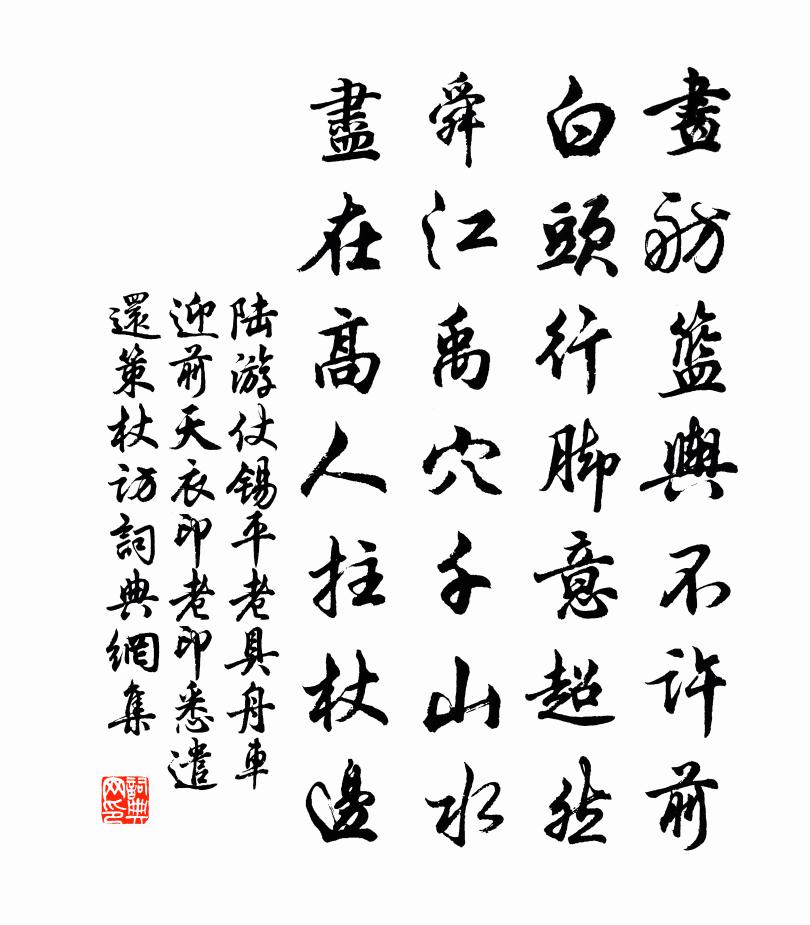 畫舫籃輿不許前
白頭行脚意超然
舜江禹穴千山水
盡在高人拄杖邊
陸游仗錫平老具舟車
迎前天衣印老印悉遣
還策杖訪詞典網集
詞典網印